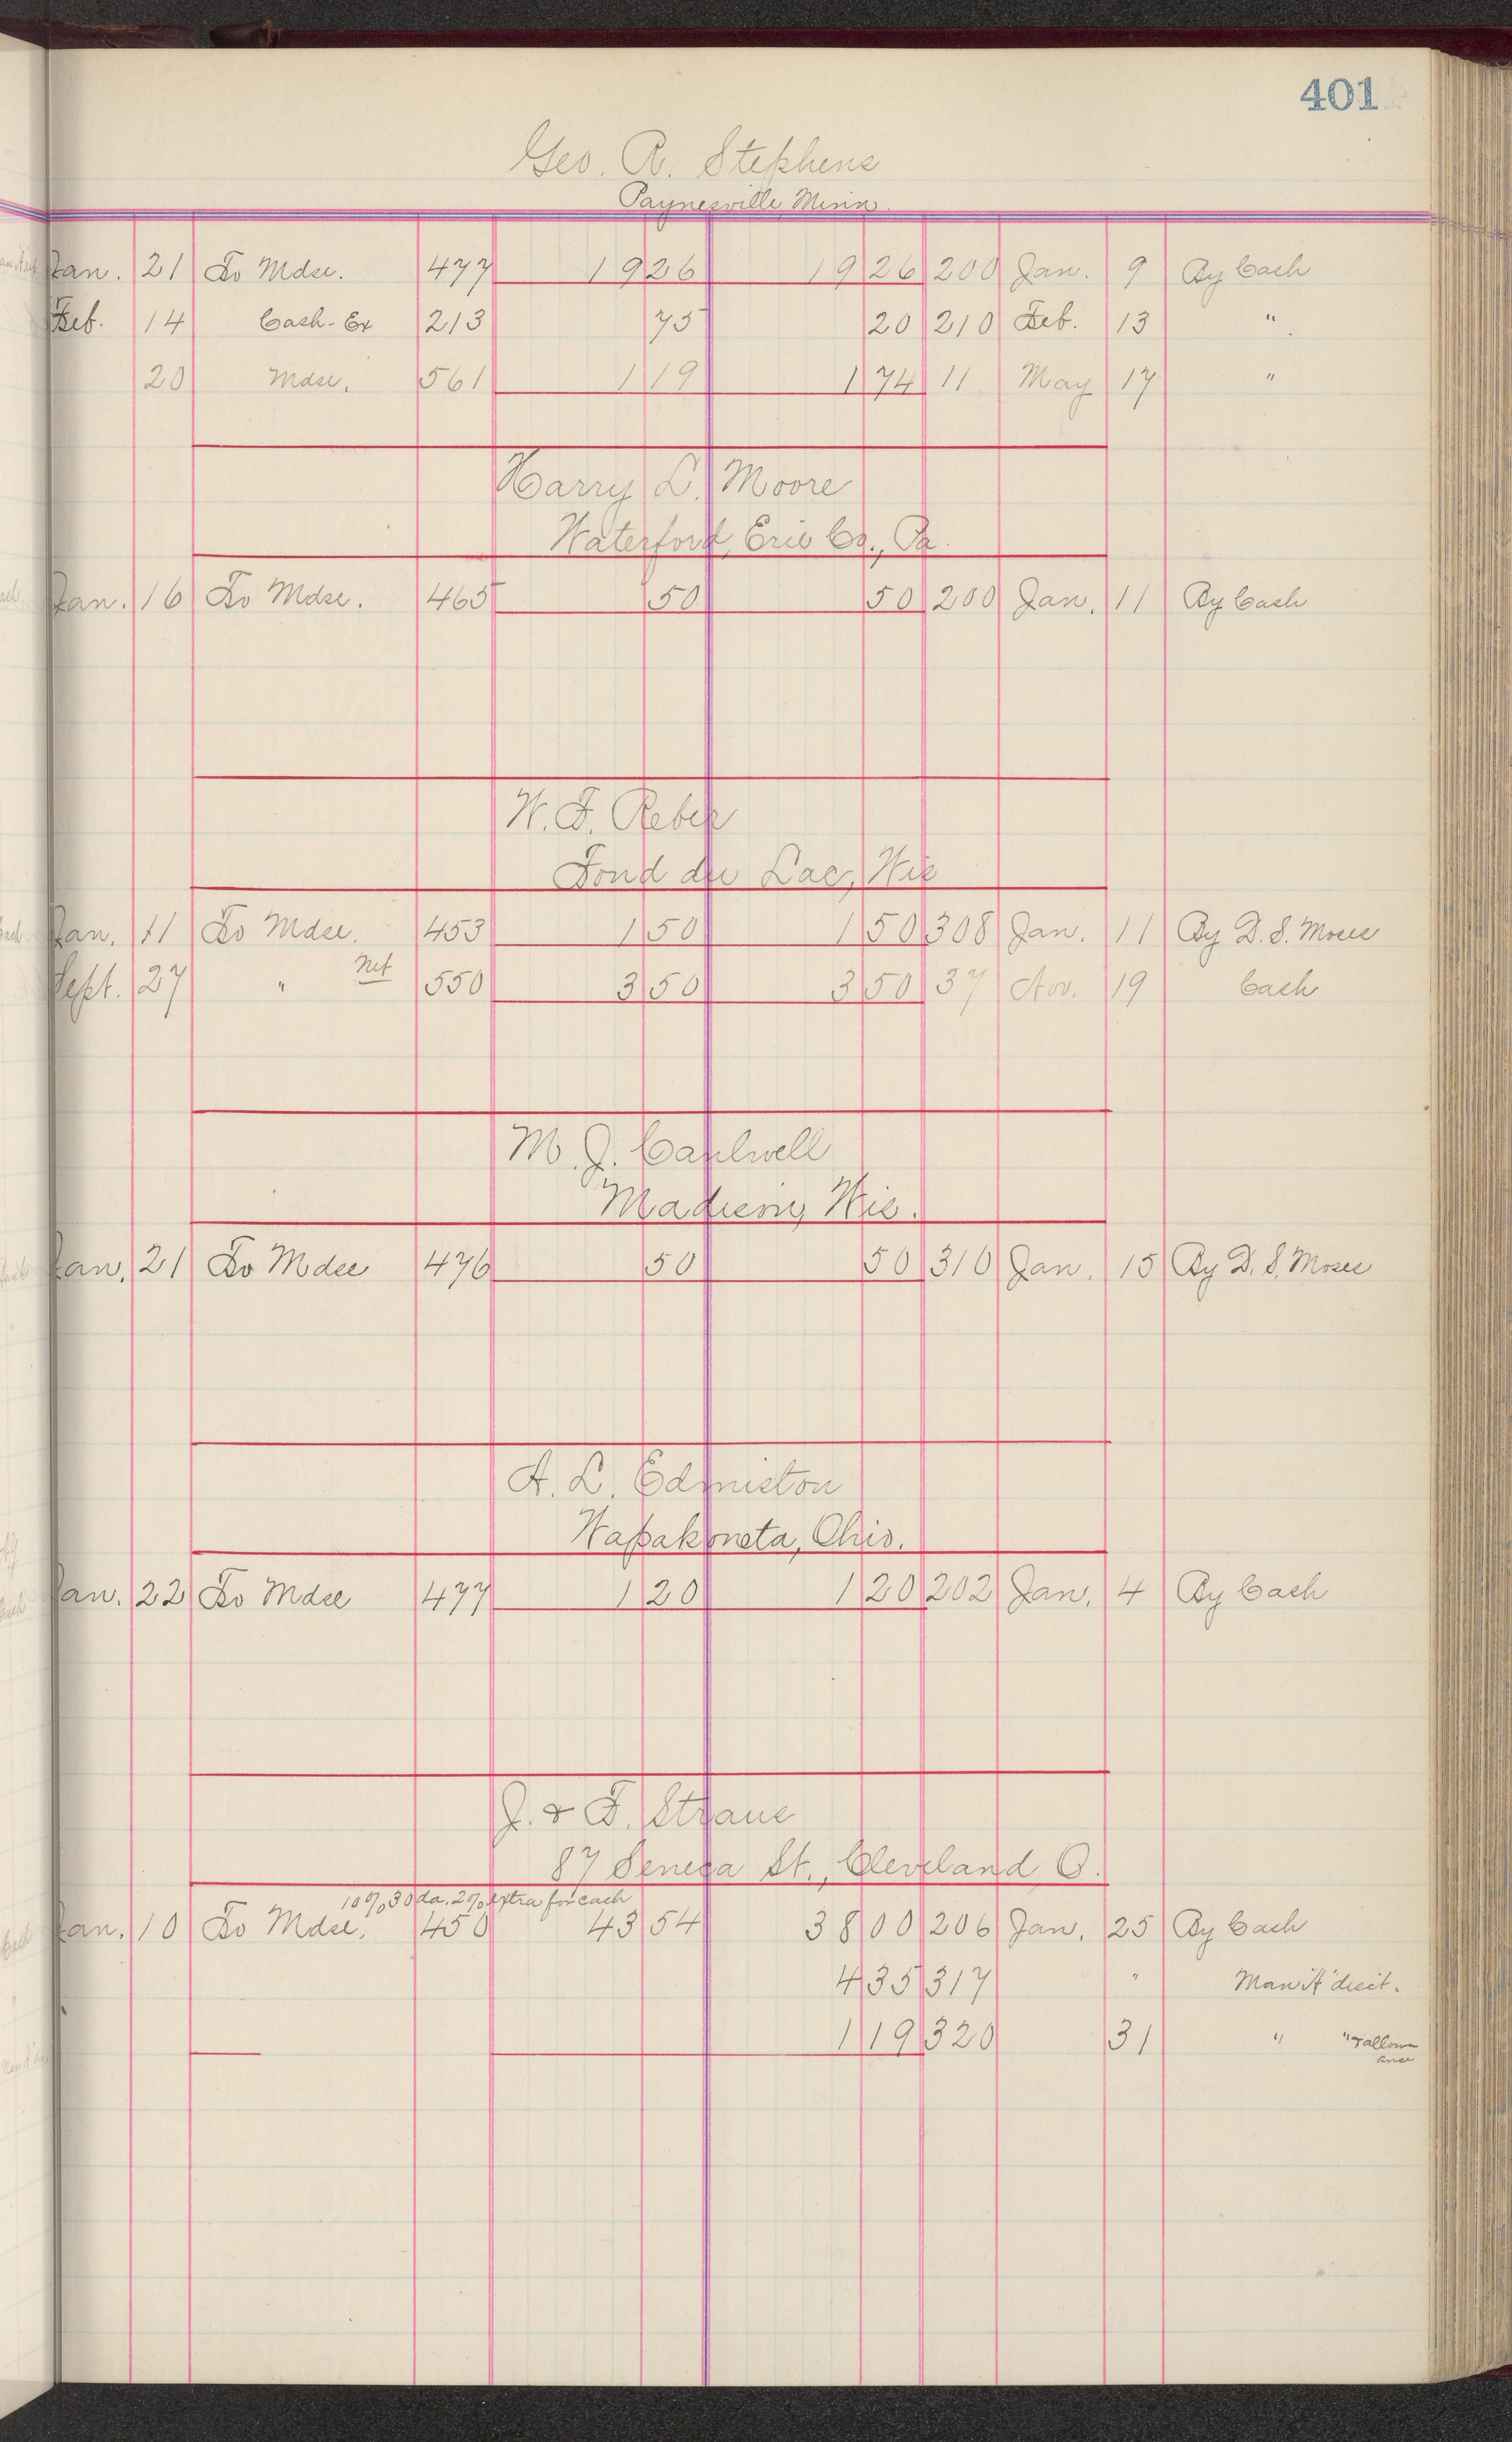 401
Geo. R. Stephens
Paynesville, Minn.
Jan. 21 To Mdse. 477 19 26 19 26 200 Jan. 9 By Cash
Feb. 14 Cash-Ex 213 75 20 210 Feb. 13 "
20 Mdse. 561 1 19 1 74 11 May 17 "
Harry L. Moore
Waterford, Erie Co., Pa.
Jan. 16 To Mdse. 465 50 50 200 Jan. 11 By Cash
W. F. Reber
Fond du Lac, Wis
Jan. 11 To Mdse. 453 1 50 1 50 308 Jan. 11 By D. S. Moses
Sept. 27 " Net 550 3 50 3 50 37 Nov. 19 Cash
M. J. Cantwell
Madison, Wis.
Jan. 21 To Mdse 476 50 50 310 Jan. 15 By D. S. Moses
A. L. Edmiston
Wapakoneta, Ohio.
Jan. 22 To Mdse 477 1 20 1 20 202 Jan. 4 By Cash
J. & F. Straus
87 Seneca St., Cleveland O.
10% 30 da. 2% extra for cash
Jan. 10 To Mdse. 450 43 54 38 00 206 Jan. 25 By Cash
4 35 317 " Man "A" disct.
1 19 320 31 " " + allow-
ance